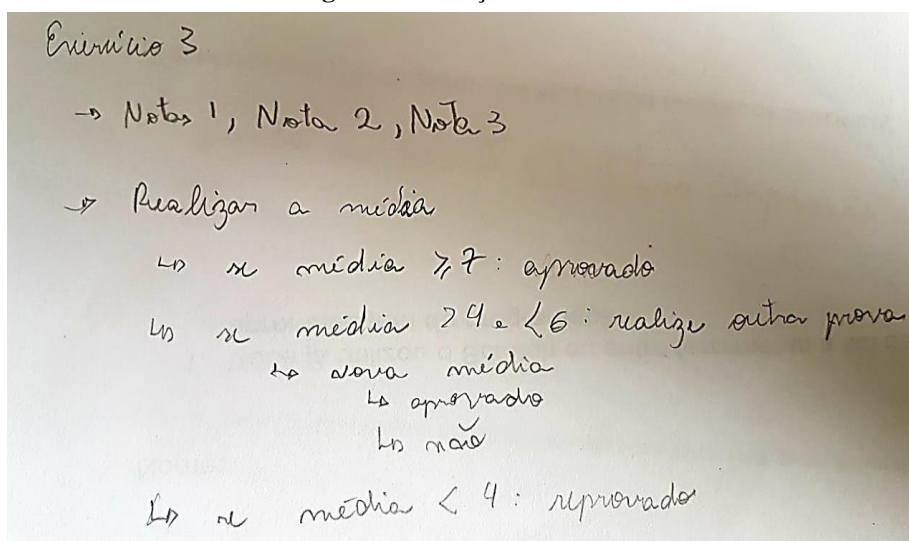 Exercício 3
→ Notas 1, Nota 2, Nota 3
→ Realizar a média
↳ se média ≥ 7 : aprovado
↳ se média > 4 e < 6 : realize outra prova
↳ nova média
↳ aprovado
↳ não
↳ se média < 4 : reprovado